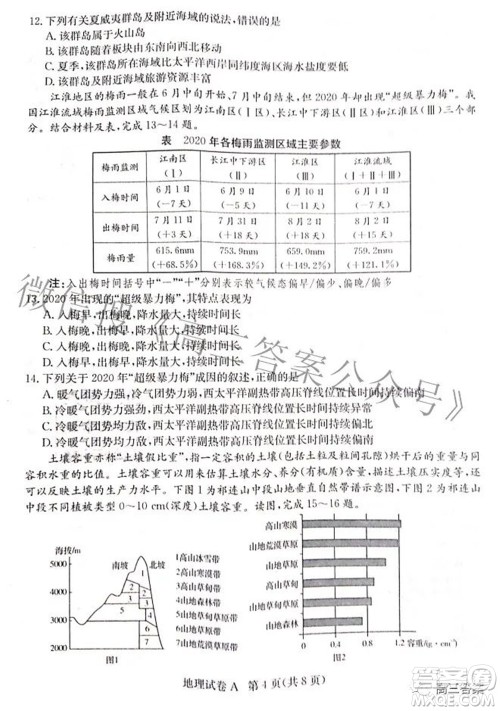 12.下列有关夏威夷群岛及附近海域的说法,错误的是
A.该群岛属于火山岛
B.该群岛板块由东南向西北运动
C.夏季,该群岛海区比太平洋西岸同纬度海区海水盐度要低
D.该群岛及附近海域旅游资源丰富
江淮地区的梅雨一般在6月中旬开始,7月中旬结束,但2020年却出现“超级暴力梅”。我
国江淮流域梅雨监测区域气候区划为江南区(Ⅰ)、长江中下游区(Ⅱ)和江淮区(Ⅲ)三个部
分。结合材料及表,完成13~14题。
表 2020年各梅雨监测区域主要参数
梅雨监测 江南区(Ⅰ) 长江中下游区(Ⅱ) 江淮区(Ⅲ) 江淮流域(Ⅰ+Ⅱ+Ⅲ)
入梅时间 6月1日(-7天) 6月9日(-5天)
出梅时间 7月11日(+3天)
梅雨量 615.6mm(+68.5%) 753.9mm(+168%) 659.8mm(+149.2%) 759.2mm(+121%)
注:入出梅时间括号中“-”“+”分别表示较气候态偏早/偏少、偏晚/偏多
13.2020年出现的“超级暴力梅”,其特点表现为
A.入梅晚,出梅早,降水量大,持续时间长
B.入梅早,出梅晚,降水量大,持续时间长
C.入梅晚,出梅晚,降水量大,持续时间长
D.入梅早,出梅早,降水量大,持续时间长
14.下列关于2020年“超级暴力梅”成因的叙述,正确的是
A.暖气团势力强,冷气团势力弱,西太平洋副热带高压脊线位置长时间持续偏南
B.冷暖气团势力强劲,西太平洋副热带高压脊线位置长时间持续异常
C.冷暖气团势力均力敌,西太平洋副热带高压脊线位置长时间持续偏北
D.冷暖气团势力均力敌,西太平洋副热带高压脊线位置长时间持续偏南
土壤容重亦称“土壤假比重”,指一定容积的土壤(包括土粒及粒间的孔隙)烘干后的重量与同
容积水重的比值。土壤容重可以用来估算土壤水分、养分(有机质)含量等,因此可以用它来大致
反映土壤的生产能力。下图1为祁连山中段山地垂直自然带谱示意图,下图2为祁连山中
段不同植被类型0~10cm(深度)土壤容重。读图,完成15~16题。
海拔/m
南坡 北坡
5000
4000
3000
2000
1高山冰雪带
2高山寒漠带
3高山草甸带
4山地草甸带
5山地森林带
6山地草甸草原带
7山地草原带
图1
高山寒漠
山地荒漠草原
山地草原
高山草甸
山地森林
山地灌丛
0 0.4 0.8 1.2容重/(g/cm³)
图2
地理试卷A 第4页(共8页)
微信搜《高三答案公众号》
高三答案